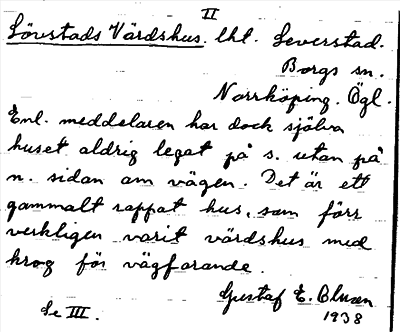 II
Lövstads Värdshus. lht. Leverstad.
Borgs sn.
Norrköping. Ögl.
Enl. meddelaren har dock själva
huset aldrig legat på s. utan på
n. sidan om vägen. Det är ett
gammalt rappat hus, som förr
verkligen varit värdshus med
krog för vägfarande.
Gustaf E.
Se III.
1938